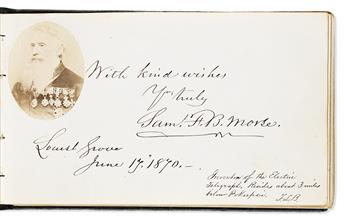 With kind wishes
Yrs truly
Saml. F. B. Morse.
Locust Grove
June 17, 1870.—
Inventor of the Electric
Telegraph, Resides about 2 miles
below Po'keepsie